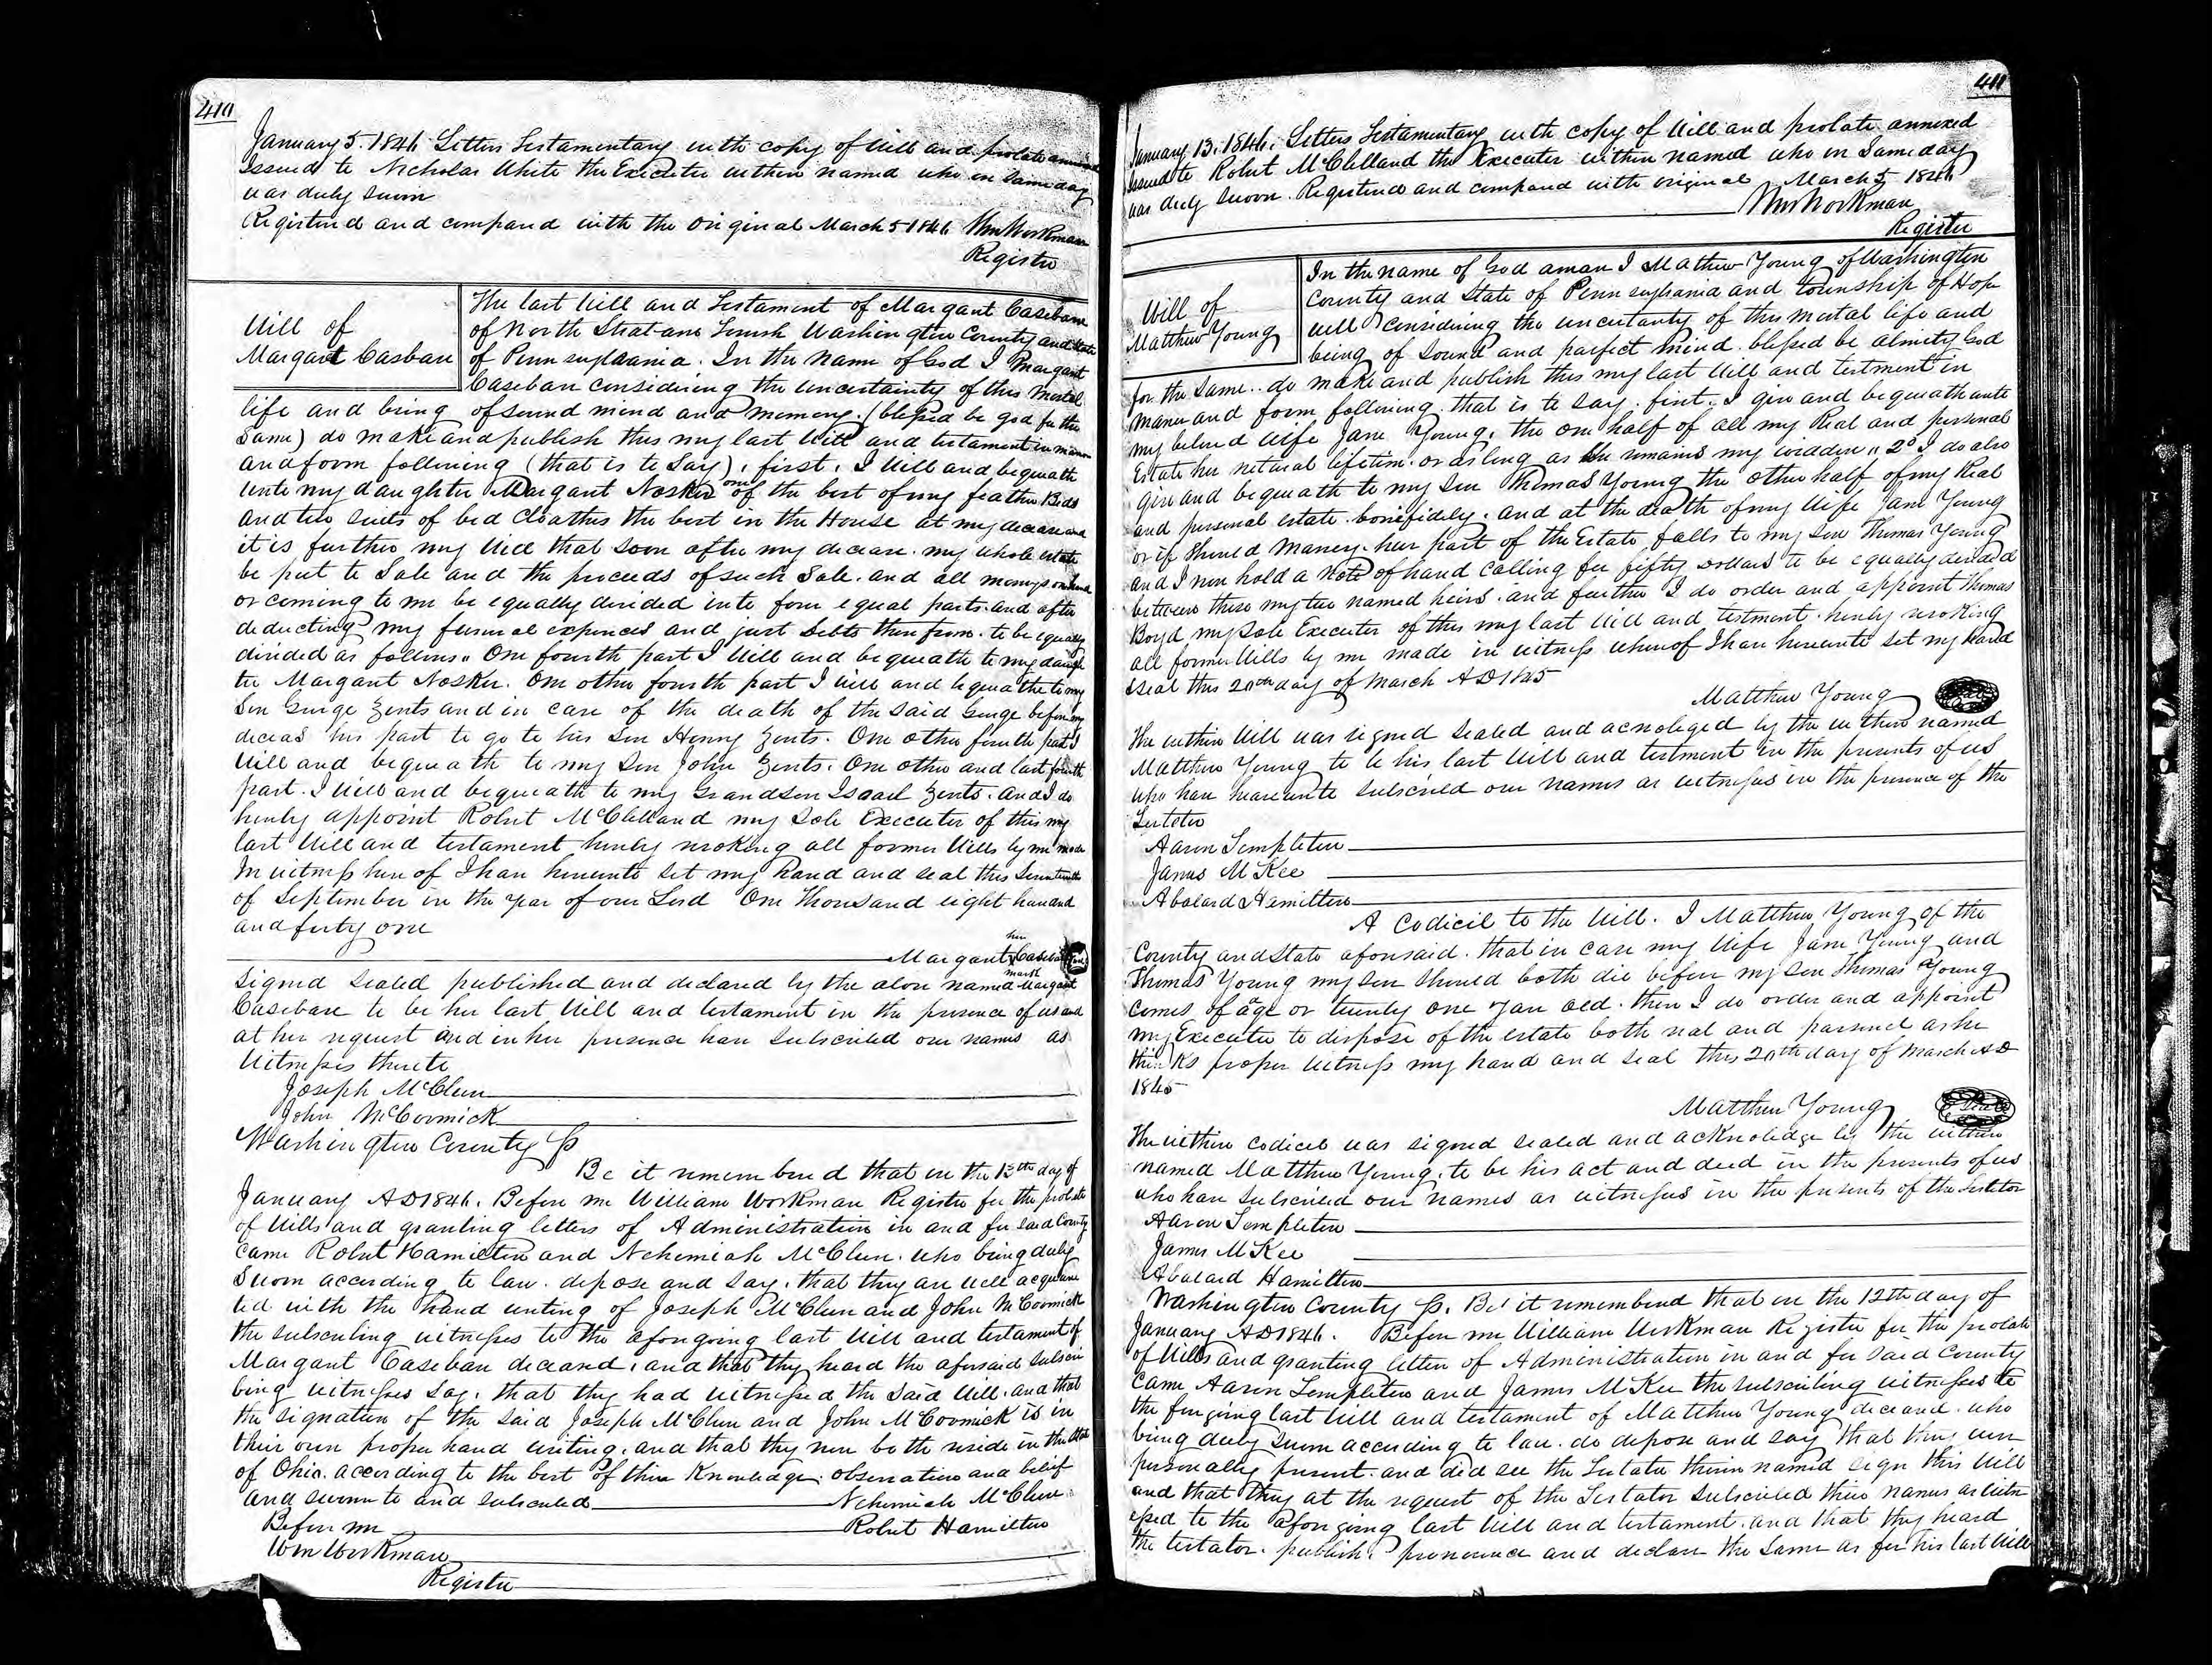 410
January 5. 1846 Letters Testamentary with copy of Will and probate annexed
Issued to Nicholas White the Executor within named who on same day
was duly sworn
Registered and compared with the Original March 5 1846 Wm Workman
Register
Will of
Margaret Casbare
The last Will and Testament of Margaret Casebare
of North Strabane Township Washington County and State
of Pennsylvania. In the name of God I Margaret
Casebare considering the uncertainty of this mortal
life and being of sound mind and memory. (blessed be god for the
same) do make and publish this my last Will and testament in manner
and form following (that is to say), first, I Will and bequeath
unto my daughter Margaret Nosker one of the best of my feather Beds
and two suits of bed Cloathes the best in the House at my decease and
it is further my Will that soon after my decease my whole estate
be put to Sale and the proceeds of such Sale. and all moneys on hand
or coming to me be equally divided into four equal parts. and after
deducting my funeral expences and just Debts therefrom. to be equally
divided as follows. One fourth part I Will and bequeath to my daugh
ter Margaret Nosker. One other fourth part I will and bequeathe to my
Son George Zents and in case of the death of the said George before my
deceas his part to go to his Son Henry Zents. One other fourth part I
Will and bequeath to my Son John Zents. One other and last fourth
part. I will and bequeath to my Grandson Israel Zents. and I do
hereby appoint Robert McClelland my Sole Executor of this my
last Will and testament hereby revoking all former Wills by me made
In witness hereof I have hereunto set my hand and seal this Seventeenth
of September in the year of our Lord One Thousand eight hundred
and forty one
her
Margaret X Casebare Seal
mark
Signed sealed published and declared by the above named Margaret
Casebare to be her last Will and testament in the presence of us and
at her request and in her presence have subscribed our names as
Witnesses thereto
Joseph McClure
John McCormick
Washington County Ss
Be it remembered that on the 13th day of
January AD 1846. Before me William Workman Register for the probate
of Wills and granting letters of Administration in and for said County
Came Robert Hamilton and Nehemiah McClure. who being duly
Sworn according to law. depose and say, that they are well acquain
ted with the hand writing of Joseph McClure and John McCormick
the subscribing witnesses to the aforgoing last Will and testament of
Margaret Casebare deceased, and that they heard the aforsaid subscri
bing witnesses say. that they had witnessed the said Will. and that
the signature of the said Joseph McClure and John McCormick is in
their own proper hand writing. and that they now both reside in the State
of Ohio. according to the best of thier Knowledge. observation and belief
and sworn to and subscribed Nehemiah McClure
Before me Robert Hamilton
Wm Workman
Register
411
January 13. 1846. Letters Testamentary with copy of Will and probate annexed
Issued to Robert McClelland the Executor within named who on same day
was duly sworn. Registered and compared with original March 5 1846
Wm Workman
Register
Will of
Matthew Young
In the name of God aman I Mathew Young of Washington
County and State of Pennsylvania and township of Hope
well considering the uncertanty of this mortal life and
being of sound and parfect mind. blessed be almity God
for the same.. do make and publish this my last Will and testment in
maner and form following. that is to say. first. I give and bequeath unto
my beloved wife Jane Young. the one half of all my Real and personal
Estate her netural lifetime. or as long as she remains my widdow " 2d I do also
give and bequeath to my son Thomas Young the other half of my Real
and personal estate. bonifidely. and at the death of my Wife Jane Young
or if should Marrey. her part of the Estate falls to my Son Thomas Young
and I now hold a Note of hand calling for fifty Dollars to be equally devided
between these my two named heirs. and further I do order and appoint Thomas
Boyd my sole Executer of this my last Will and testment. hereby revoking
all former Wills by me made in witness whereof I have hereunto set my hand
& seal this 20th day of March AD 1845
Matthew Young Seal
The within Will was signed sealed and acnoleged by the within named
Matthew Young to be his last Will and testment in the presents of us
who have heareunto subscribed our names as witnesses in the presence of the
Testator
Aaron Templeton
James McKee
Abalard Hamilton
A Codicil to the Will. I Matthew Young of the
County and State aforesaid. that in case my Wife Jane Young and
Thomas Young my son should both die before my son Thomas Young
comes of age or twenty one year old. then I do order and appoint
my Executor to dispose of the estate both real and parsonel as he
thinks proper witness my hand and seal this 20th day of March AD
1845
Matthew Young Seal
The within codicel was signed sealed and acknoledge by the within
named Matthew Young. to be his act and deed in the presents of us
who have subscribed our names as witnesses in the presents of the Testator
Aaron Templeton
James McKee
Abalard Hamilton
Washington County Ss. Be it remembered that on the 12th day of
January AD 1846. Before me William Workman Register for the probate
of Wills and granting letters of Administration in and for said County
Came Aaron Templeton and James McKee the subscribing witnesses to
the forgoing last Will and testament of Matthew Young deceased. who
being duly sworn according to law. do depose and say that they were
personally present. and did see the Testator therein named sign this Will
and that they at the request of the Testator subscribed thier names as witn
essed to the aforgoing last Will and testament. and that they heard
the testator. publish. pronounce and declare the same as for his last Will